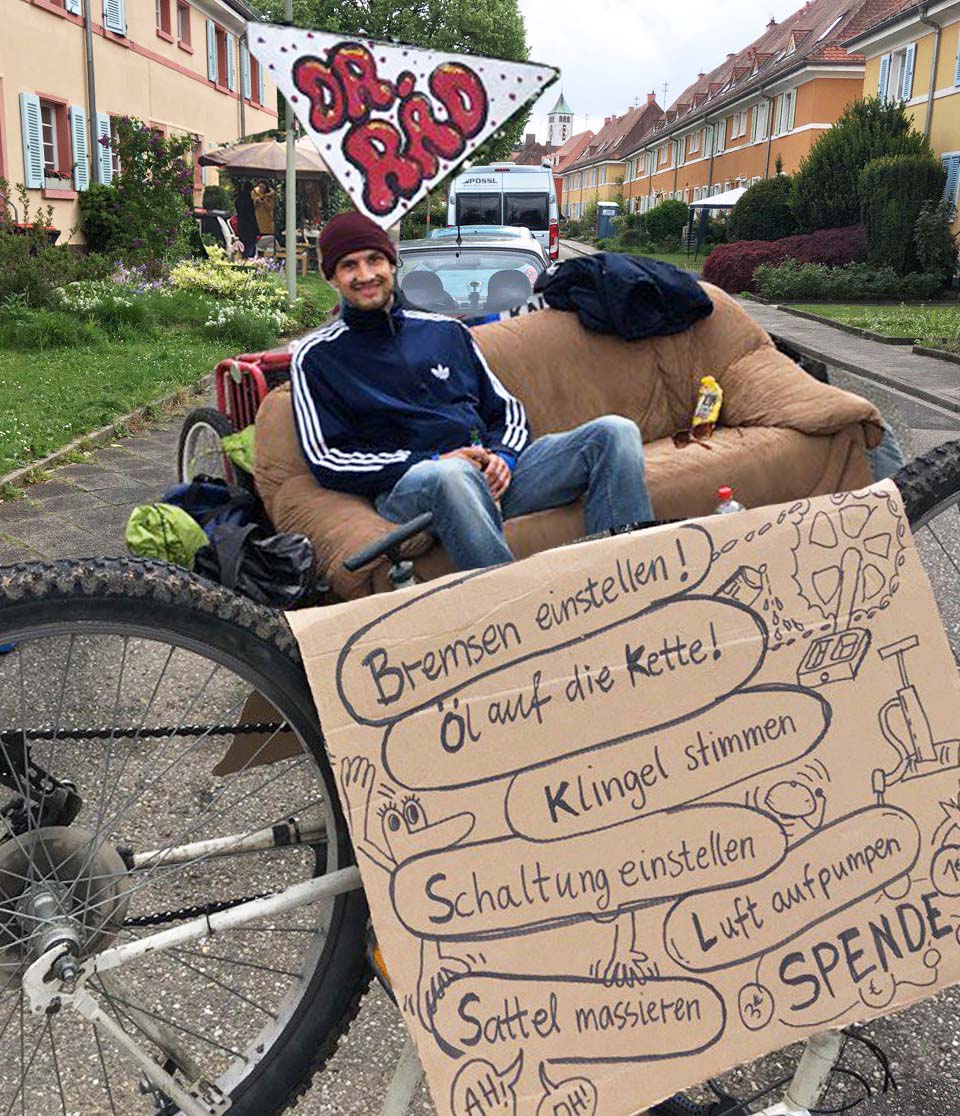 DR.
RAD
PÖSSL
Bremsen einstellen!
Öl auf die Kette!
Klingel stimmen
Schaltung einstellen
Luft aufpumpen
SPENDE
€
Sattel massieren
AH!
OH!